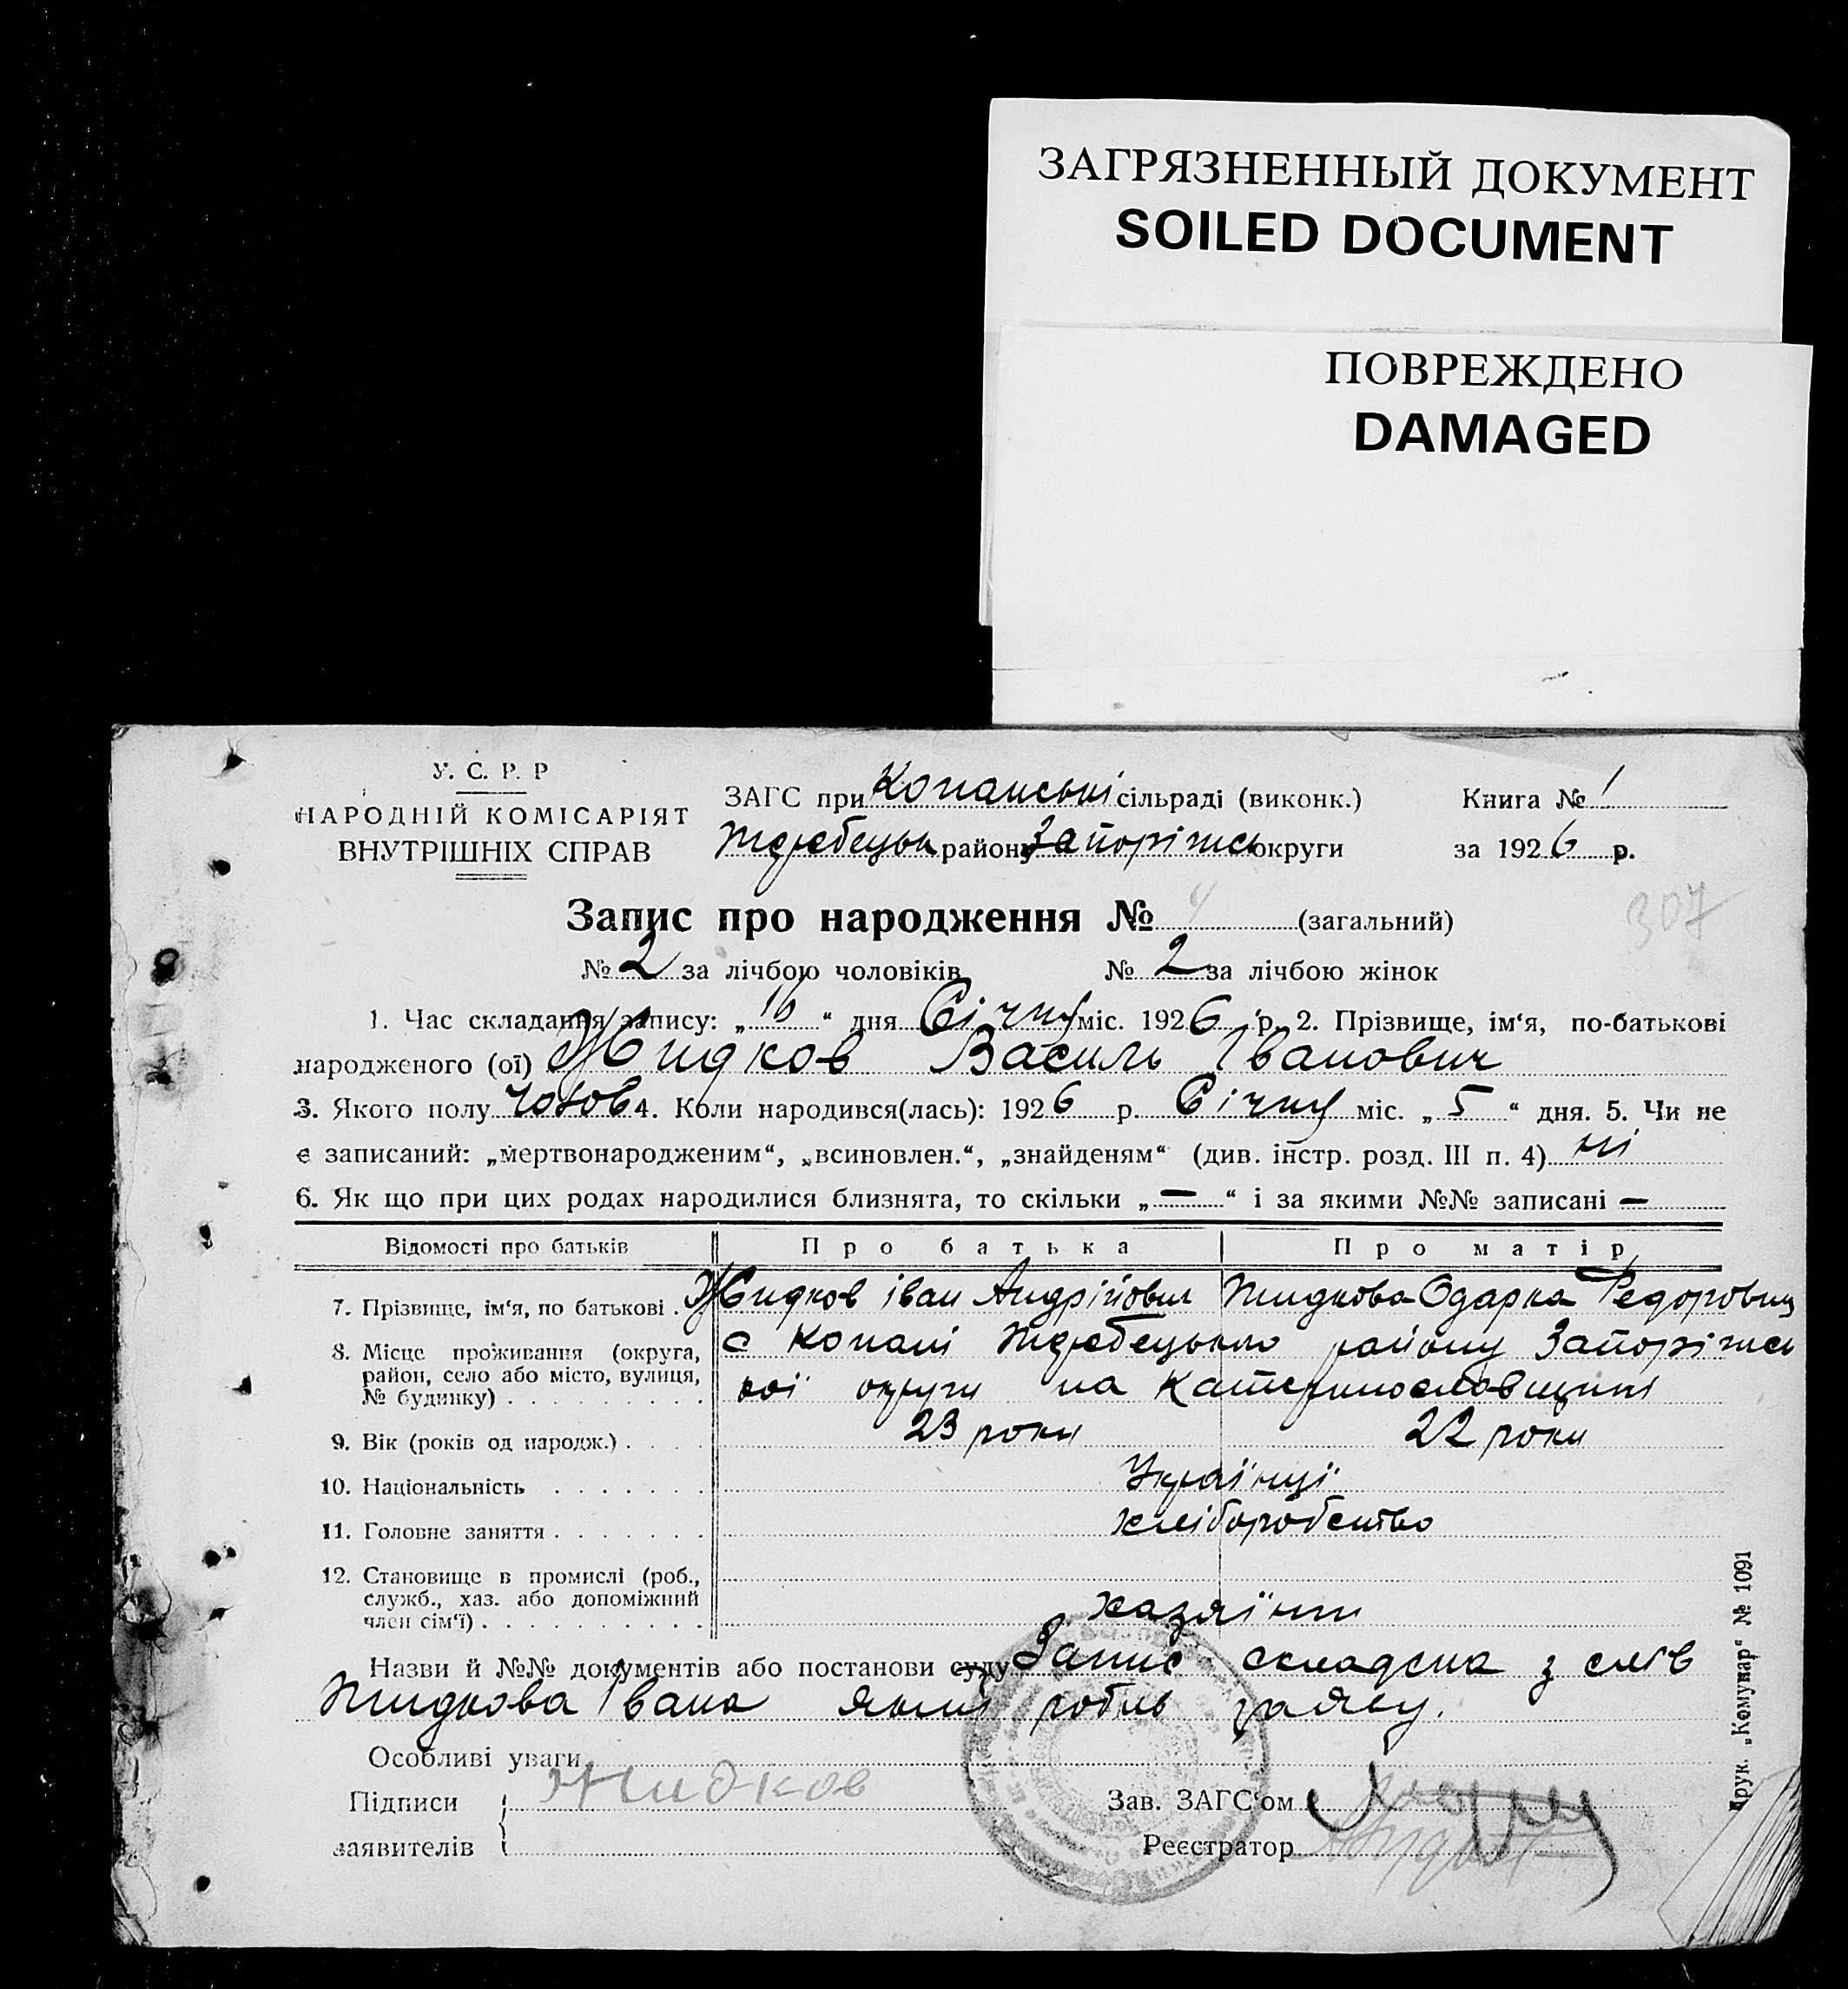 ЗАГРЯЗНЕННЫЙ ДОКУМЕНТ
SOILED DOCUMENT
ПОВРЕЖДЕНО
DAMAGED
У. С. Р. Р
НАРОДНІЙ КОМІСАРІЯТ
ВНУТРІШНІХ СПРАВ
ЗАГС при Копанські сільраді (виконк.)
Жеребецьк району Запоріжсь округи
Книга № 1
за 1926 р.
307
Запис про народження № 4 (загальний)
№ 2 за лічбою чоловіків № 2 за лічбою жінок
1. Час складання запису: „ “ дня Січня міс. 1926 р. 2. Прізвище, ім‘я, по-батькові
народженого (ої) Жидков Василь Іванович
3. Якого полу чолов 4. Коли народився(лась): 1926 р. Січня міс. „5“ дня. 5. Чи не
є записаний: „мертвонародженим“, „всиновлен.“, „знайденям“ (див. інстр. розд. III п. 4) ні
6. Як що при цих родах народилися близнята, то скільки „—“ і за якими №№ записані —
Відомості про батьків Про батька Про матір
7. Прізвище, ім‘я, по батькові . Жидков іван Андрійович Жидкова Одарка Федоровна
8. Місце проживання (округа, район, село або місто, вулиця, № будинку) . . . . . . . . .
с Копані Жеребецького району Запоріжсь
кої округи на Катеринославщині
9. Вік (років од народж.) . . . . 23 роки 22 роки
10. Національність . . . . . . . Українці
11. Головне заняття . . . . . . . хліборобство
12. Становище в промислі (роб., служб., хаз. або допоміжний член сім‘ї) . . . . . . . . . .
хазяїни
Назви й №№ документів або постанови суду Запис складена з слів
Жидкова Івана який робив заяву.
Особливі уваги
Підписи Жидков Зав. ЗАГС‘ом
заявителів Реєстратор
Друк. „Комунар“ № 1091